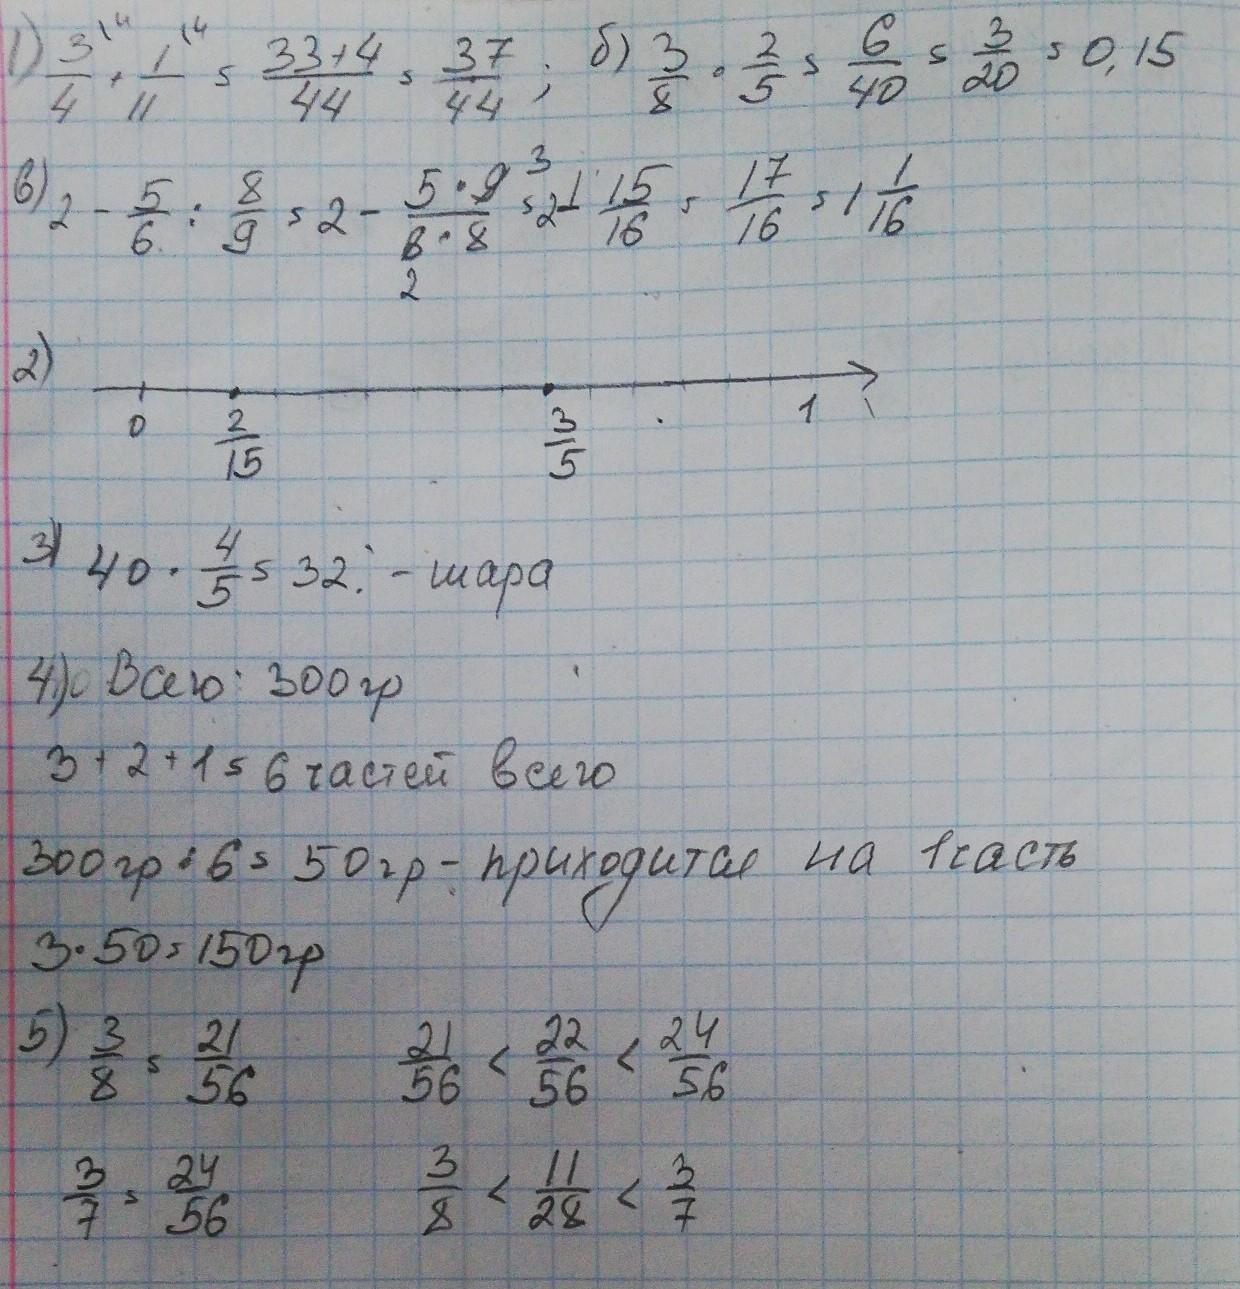 1) 3/4 + 1/11 = 33+4/44 = 37/44 ; б) 3/8 · 2/5 = 6/40 = 3/20 = 0,15
в) 2 - 5/6 : 8/9 = 2 - 5·9/6·8 = 2 - 15/16 = 17/16 = 1 1/16
2)
0 2/15 3/5 1
3) 40 · 4/5 = 32 - шара
4) Всего: 300 гр
3 + 2 + 1 = 6 частей всего
300 гр : 6 = 50 гр - приходится на 1 часть
3 · 50 = 150 гр
5) 3/8 = 21/56 21/56 < 22/56 < 24/56
3/7 = 24/56 3/8 < 11/28 < 3/7